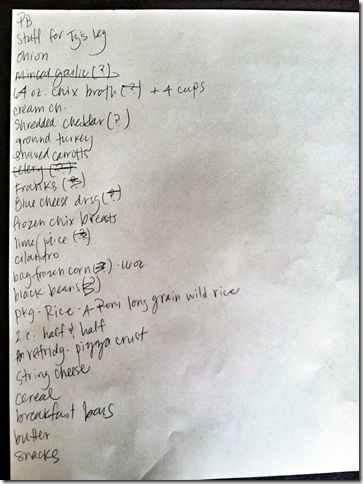 PB
Stuff for Ty's leg
Onion
minced garlic (?)
64 oz. chix broth (?) + 4 cups
cream ch.
Shredded cheddar (?)
ground turkey
shaved carrots
celery (?)
Franks (?)
Blue cheese drsg (?)
frozen chix breasts
lime juice (?)
cilantro
bag frozen corn (?) - 16 oz
black beans (?)
pkg. Rice-A-Roni long grain wild rice
2 c. half & half
refridg. pizza crust
String cheese
cereal
breakfast bars
butter
snacks